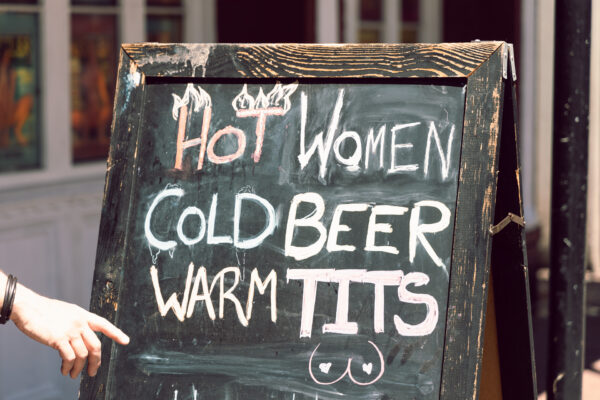 HOT WOMEN
COLD BEER
WARM TITS